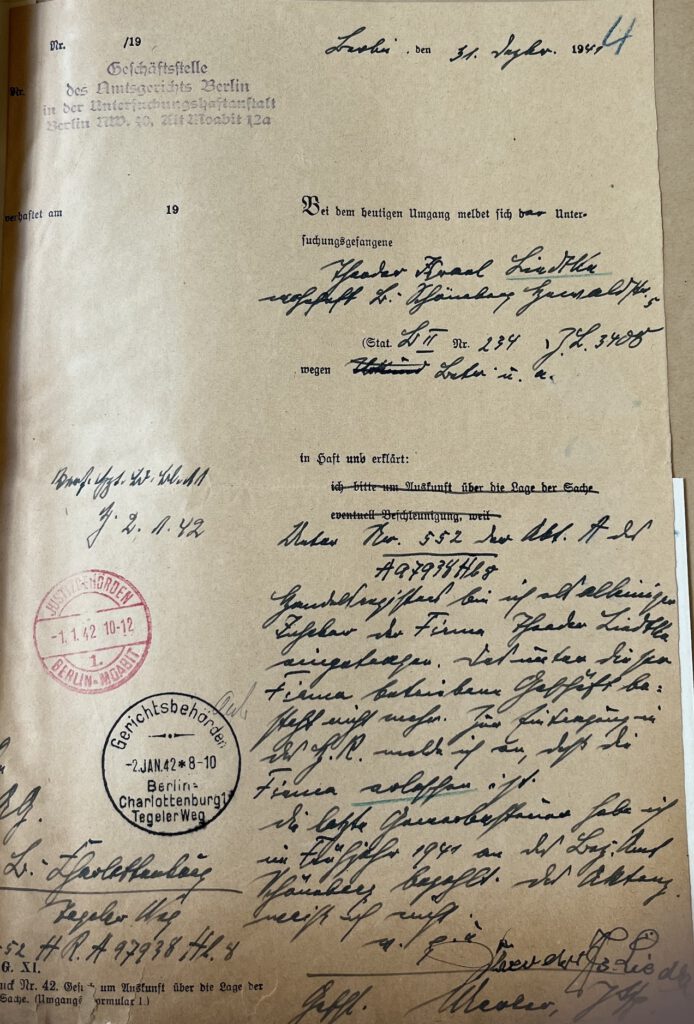 Nr. /19
Berlin, den 31. Dezbr. 1941
4
Geschäftsstelle
des Amtsgerichts Berlin
in der Untersuchungshaftanstalt
Berlin NW. 40, Alt Moabit 12a
verhaftet am 19
Bei dem heutigen Umgang meldet sich der Unter-
suchungsgefangene
Theodor Israel Liedtke
wohnhaft B.-Schöneberg
5
(Stat. B II Nr. 234 J.L. 3408
wegen Betr. u. a.
in Haft und erklärt:
ich bitte um Auskunft über die Lage der Sache
eventuell Beschleunigung, weil
Unter Nr. 552 der Abt. A des
A 97938 Hl. 8
Handelsregisters bin ich als alleiniger
Inhaber der Firma Theodor Liedtke
eingetragen. Das unter dieser
Firma betriebene Geschäft be-
steht nicht mehr. Zur Eintragung in
das H.R. melde ich an, daß die
Firma erloschen ist.
Die letzte Gewerbesteuer habe ich
im Frühjahr 1941 an das Bez. Amt
Schöneberg bezahlt. Das Aktenz.
weiß ich nicht.
2. 1. 42
JUSTIZBEHÖRDEN
-1.1.42 10-12
1.
BERLIN-MOABIT
Gerichtsbehörden
-2.JAN.42*8-10
Berlin-
Charlottenburg 1
Tegeler Weg
AG.
B.-Charlottenburg
Tegeler Weg
552 H R. A 97938 Hl. 8
G. XI.
Nr. 42. Gesuch um Auskunft über die Lage der
Sache. (Umgangsformular 1.)
Theodor Is. Liedtke